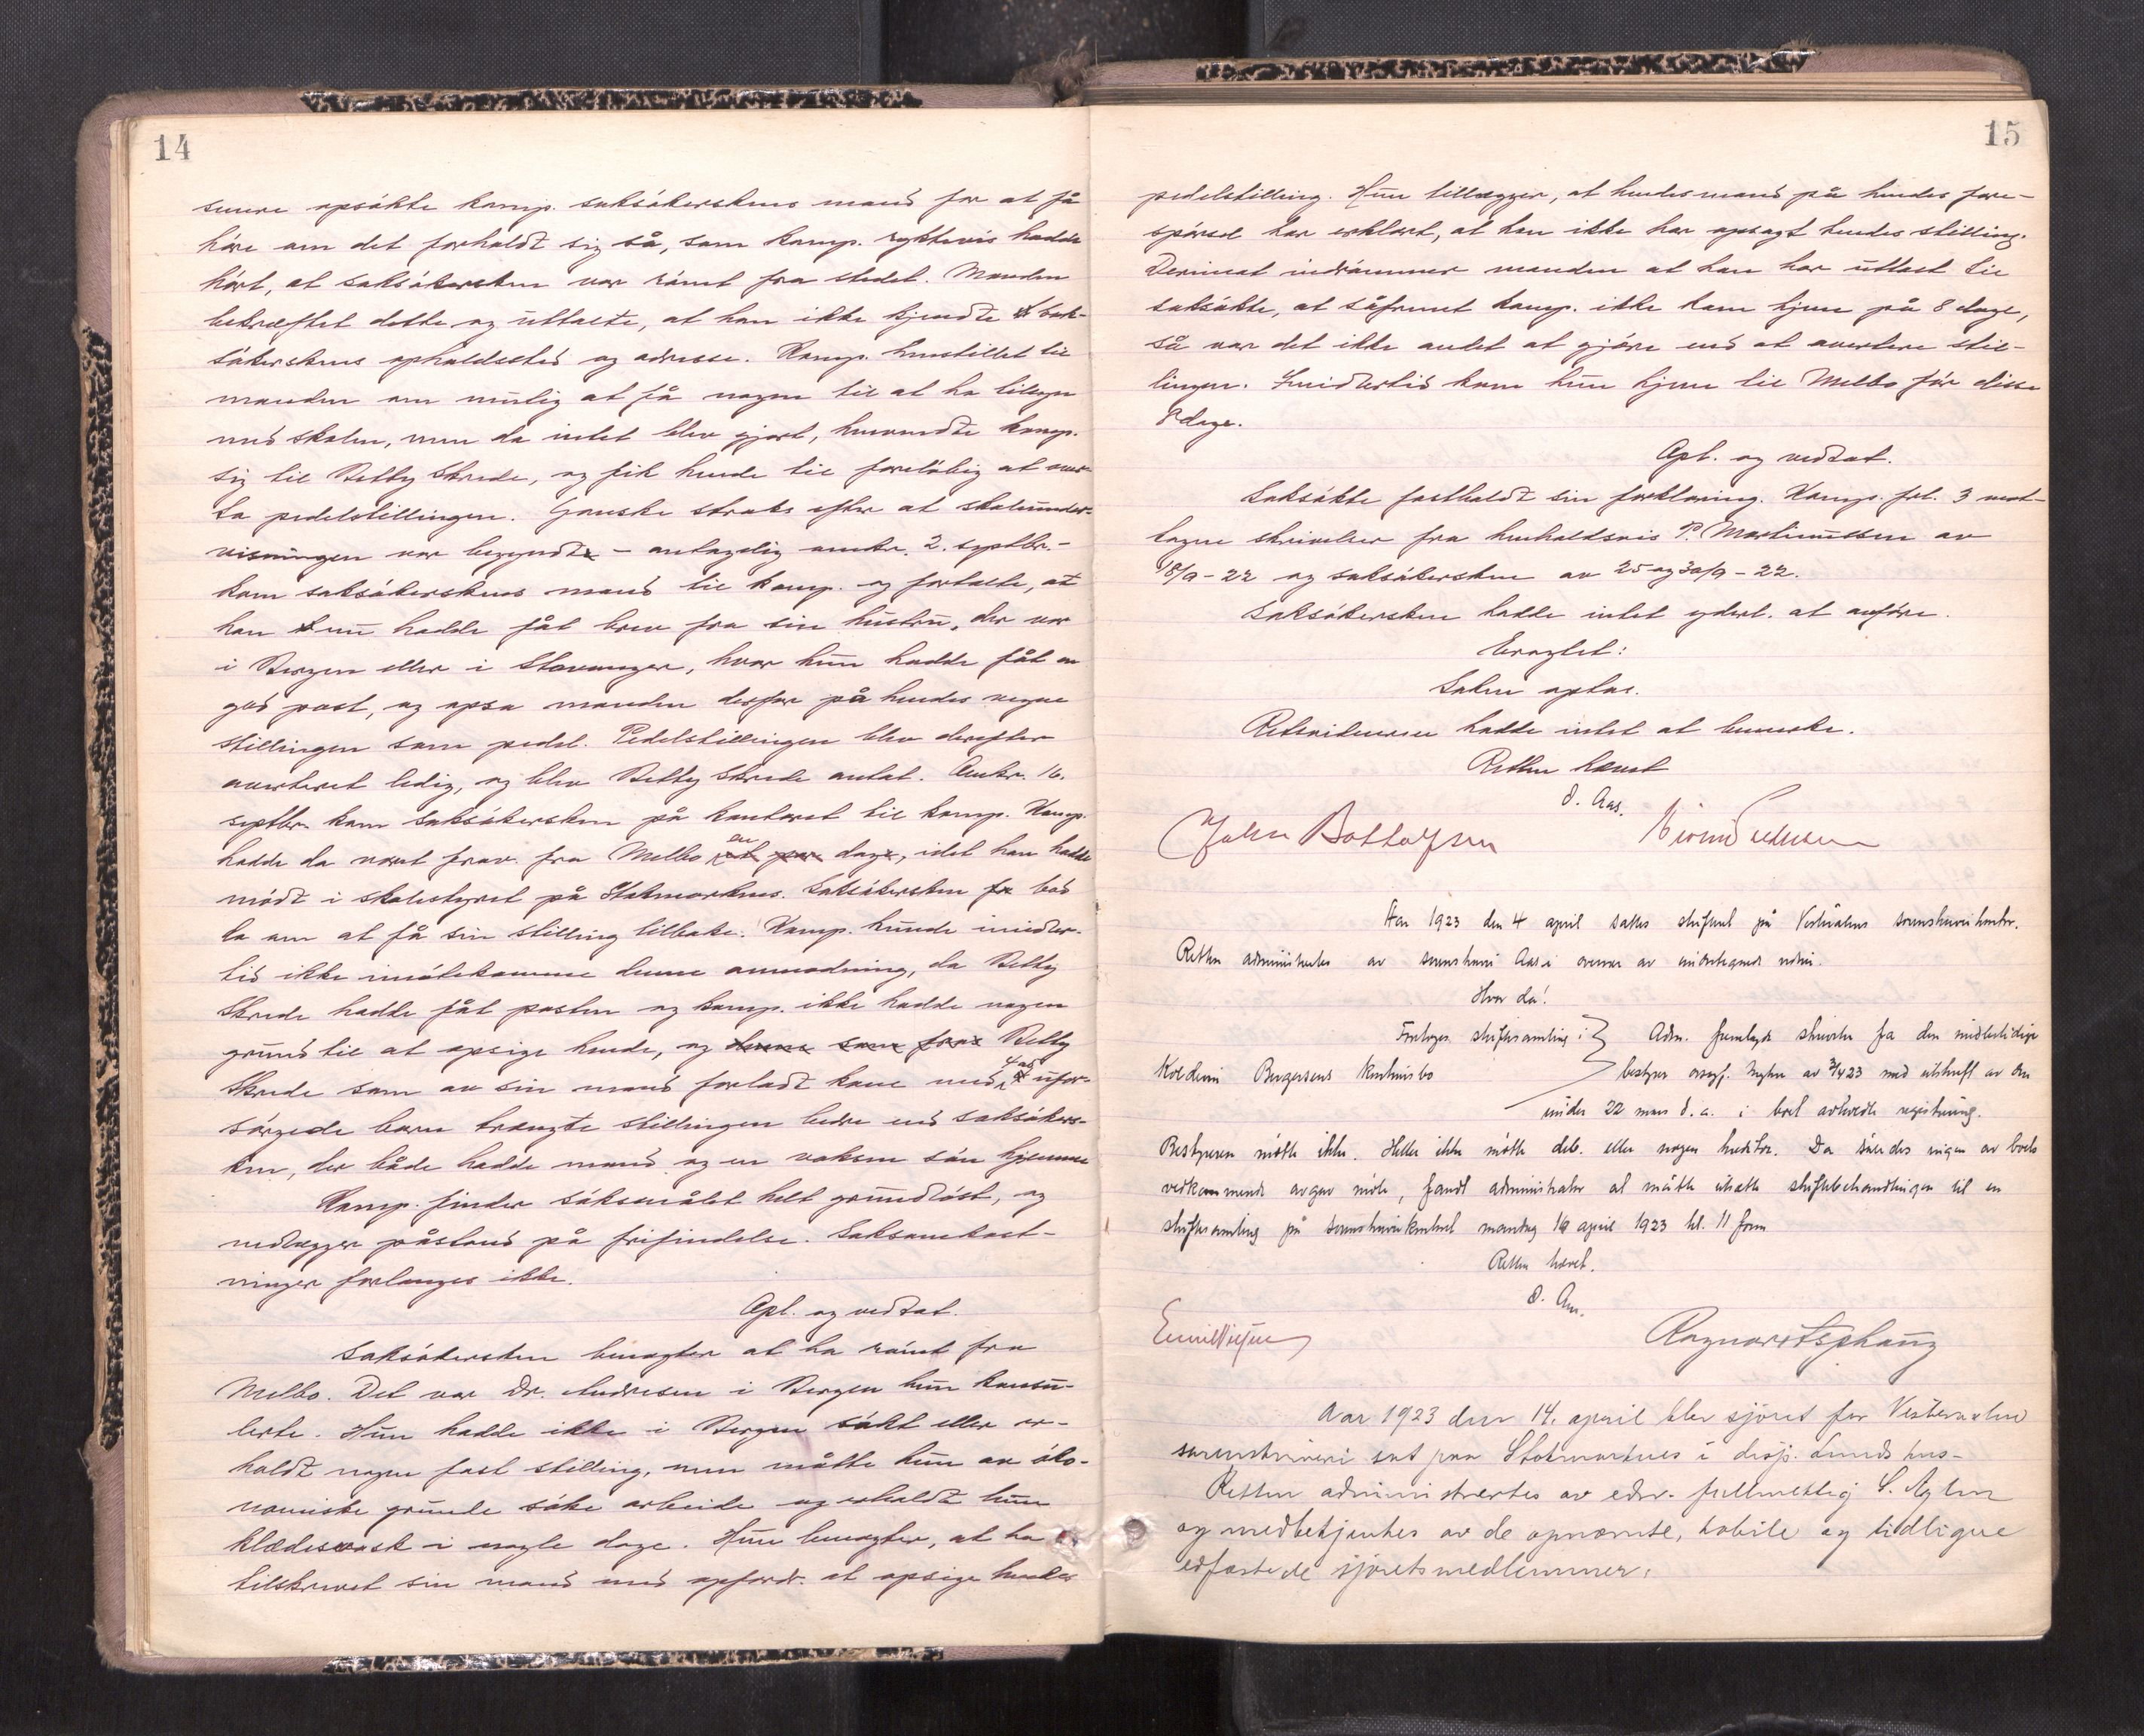 14
senere opsökte komp. saksökerskens mand for at få
höre om det forholdt sig så, som komp. ryktevis hadde
hört, at saksökersken var römt fra stedet. Manden
bekræftet dette og uttalte, at han ikke kjendte sak-
sökerskens opholdssted og adresse. Komp. henstillet til
manden om mulig at få nogen til at ha tilsyn
med skolen, men da intet blev gjort, henvendte komp.
sig til Betty Skrede, og fik hende til foreløbig at over-
ta pedelstillingen. Ganske straks efter at skoleunder-
visningen var begyndt – antagelig omkr. 2. septbr. –
kom saksökerskens mand til komp. og fortalte, at
han nu hadde fåt brev fra sin hustru, der var
i Bergen eller i Stavanger, hvor hun hadde fåt en
god post, og opsa manden derfor på hendes vegne
stillingen som pedel. Pedelstillingen blev derefter
averteret ledig, og blev Betty Skrede antat. Omkr. 16.
septbr. kom saksökersken på kontoret til komp. Komp.
hadde da været frav. fra Melbo en dag, idet han hadde
mödt i skolestyret på Stokmarknes. Saksökersken bad
da om at få sin stilling tilbake. Komp. kunde imidler-
tid ikke imötekomme denne anmodning, da Betty
Skrede hadde fåt posten og komp. ikke hadde nogen
grund til at opsige hende, og Betty
Skrede som av sin mand forladt kone med 4 små ufor-
sörgede barn trængte stillingen bedre end saksökers-
ken, der både hadde mand og en voksen sön hjemme
Komp. finder söksmålet helt grundlöst, og
nedlægger påstand på frifindelse. Saksomkost-
ninger forlanges ikke.
Opl. og vedtat.
Saksökersken benegter at ha römt fra
Melbo. Det var Dr. Andresen i Bergen hun konsu-
lerte. Hun hadde ikke i Bergen sökt eller er-
holdt nogen fast stilling, men måtte hun av öko-
nomiske grunde söke arbeide og erholdt hun
klædesvask i nogle dage. Hun benegter, at ha
tilskrevet sin mand med opfordr. at opsige hendes
15
pedelstilling. Hun tillægger, at hendes mand på hendes fore-
spörsel har erklært, at han ikke har opsagt hendes stilling.
Derimot indrömmer manden at han har uttalt til
saksökte, at såfremt komp. ikke kom hjem på 8 dage,
så var det ikke andet at gjöre end at avertere stil-
lingen. Imidlertid kom hun hjem til Melbo för disse
8 dage.
Opl. og vedtat.
Saksökte fastholdt sin forklaring. Komp. frl. 3 mot-
tagne skrivelser fra henholdsvis P. Martinussen av
18/9 - 22 og saksökersken av 25 og 30/9 - 22.
Saksökersken hadde intet yderl. at anföre.
Eragtet:
Saken optas.
Retsvidnerne hadde intet at bemerke.
Retten hævet
O. Aas.
Johan Bottolfsen
Aar 1923 den 4 april sattes skifteret på Vesteraalens sorenskriverkontor.
Retten administrertes av sorenskriver Aas i overvær av undertegnede vidner.
Hvor da!
Foretoges skiftesamling i Adm. fremlagde skrivelse fra den midlertidige
Koldevin Bergersens konkursbo bestyrer overrf. Myhre av 3/4 23 med utskrift av den
under 22 mars d.a. i boet avholdte registrering.
Bestyreren mötte ikke. Heller ikke mötte deb. eller nogen kreditor. Da således ingen av boets
vedkommende avgav möte, fandt administrator at måtte utsætte skiftebehandlingen til en
skiftesamling på sorenskriverkontoret mandag 16 april 1923 kl. 11 form
Retten hævet.
O. Aas.
Emil Nilsen Ragnar Etsphaug
Aar 1923 den 14. april blev sjöret for Vesteraalens
sorenskriveri sat paa Stokmarknes i disp. Lunds hus-
Retten administrertes av edsv. fullmektig S. Aglen
og medbetjentes av de opnævnte, habile og tidligere
edfæstede sjöretsmedlemmer: